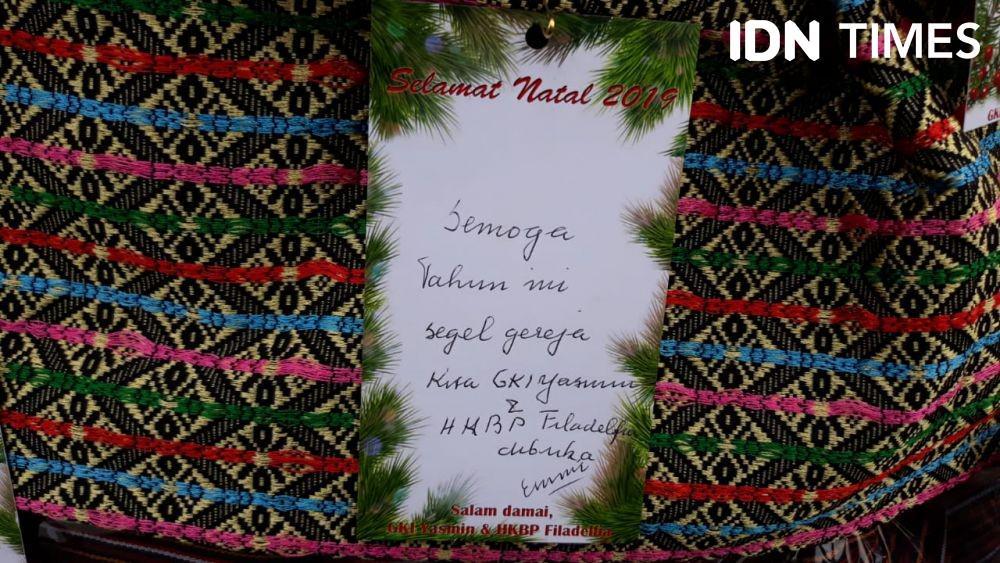 IDN TIMES
Selamat Natal 2019
Semoga
Tahun ini
segel gereja
Kita GKI Yasmin
&
HKBP Filadelfia
dibuka
Emmi
Salam damai,
GKI Yasmin & HKBP Filadelfia
GKI